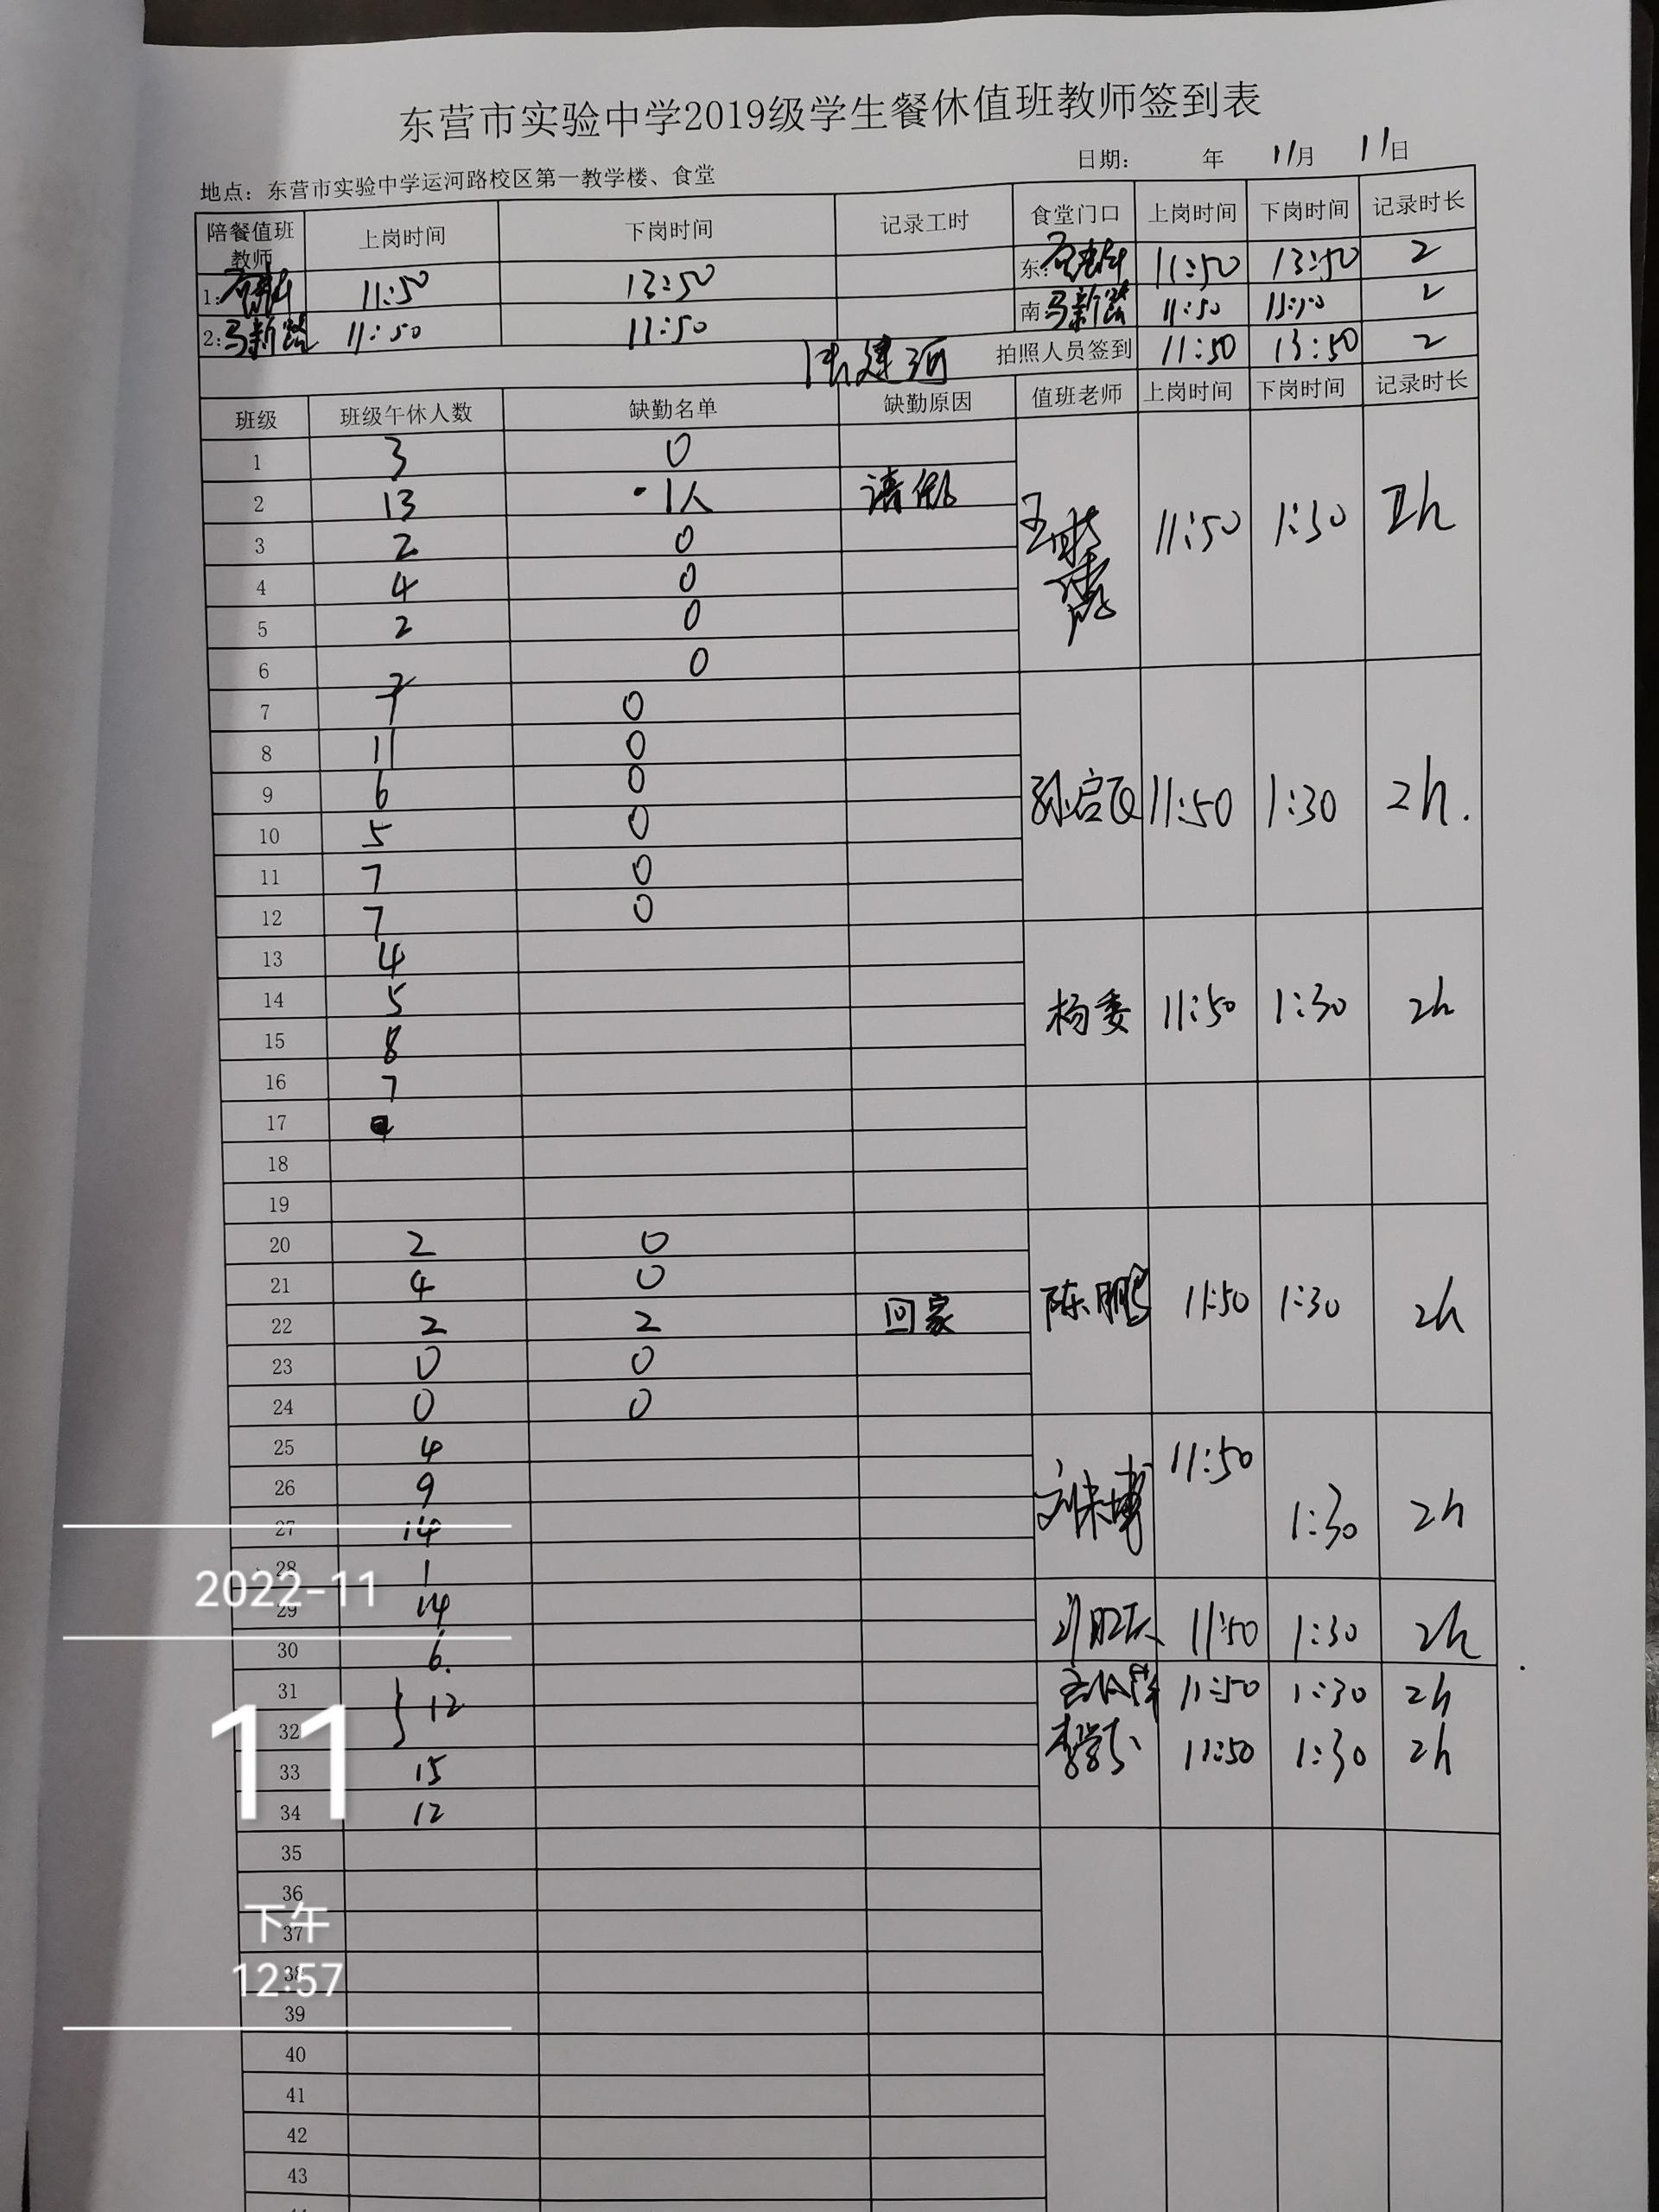 东营市实验中学2019级学生餐休值班教师签到表
日期： 年 11月 11日
地点：东营市实验中学运河路校区第一教学楼、食堂
陪餐值班教师 上岗时间 下岗时间 记录工时 食堂门口 上岗时间 下岗时间 记录时长
1: 11:50 13:50 东: 11:50 13:50 2
2:马新 11:50 11:50 南 马新 11:50 2
建河 拍照人员签到 11:50 13:50 2
班级 班级午休人数 缺勤名单 缺勤原因 值班老师 上岗时间 下岗时间 记录时长
1 3 0
2 13 1人 请假
3 2 0 王 11:50 1:30 2h
4 4 0
5 2 0
6 0
7 7 0
8 11 0
9 6 0 孙启 11:50 1:30 2h.
10 5 0
11 7 0
12 7 0
13 4
14 5 杨委 11:50 1:30 2h
15 8
16 7
17
18
19
20 2 0
21 4 0
22 2 2 回家 陈鹏 11:50 1:30 2h
23 0 0
24 0 0
25 4
26 9 刘 11:50 1:30 2h
27 14
28 1
2022-11
29 14 11:50 1:30 2h
30 6.
31 } 12 11:50 1:30 2h
32 李 11:50 1:30 2h
11
33 15
34 12
35
36
下午
37
38
12:57
39
40
41
42
43